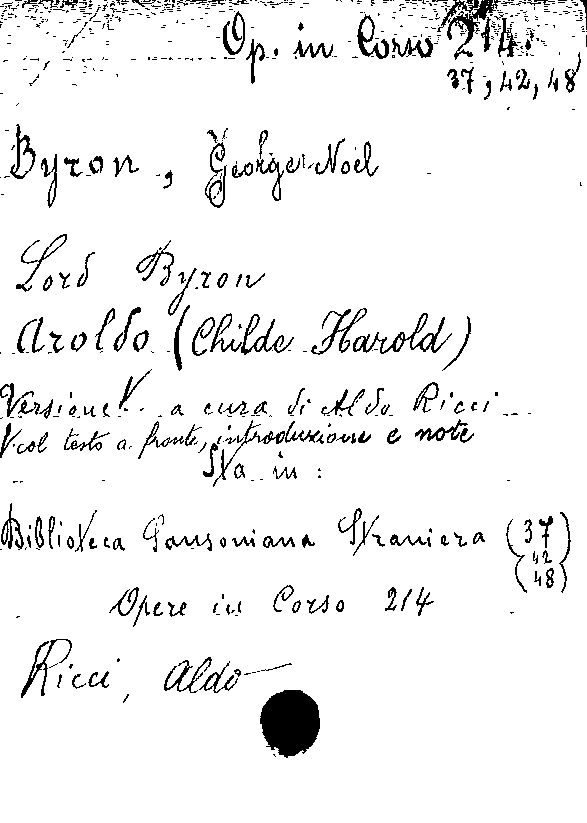 Op. in Corso 214.
37, 42, 48
Byron, George Noël
Lord Byron
Aroldo (Childe Harold)
Versione V. a cura di Aldo Ricci
V col testo a fronte, introduzione e note
Sta in :
Biblioteca Sansoniana Straniera (37
42
48)
Opere in Corso 214
Ricci, Aldo